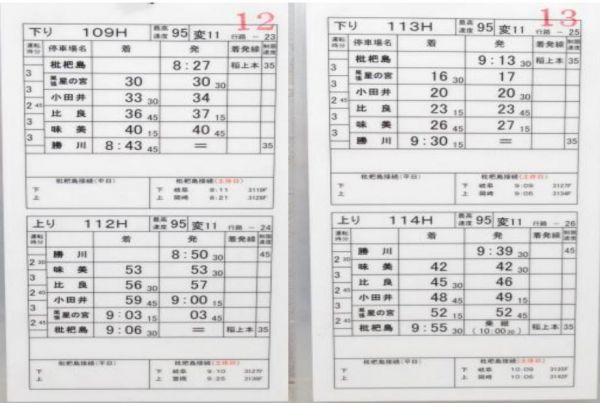 12
下り 109H 最高速度 95 変11 行路 - 23
運転時分 停車場名 着 発 着発線 制限速度
枇杷島 8:27 稲上本 35
3 尾張星の宮 30 30 30
3 小田井 33 30 34
2 45 比良 36 45 37 15
3 味美 40 15 40 45
3 勝川 8:43 45 = 35
枇杷島接続(平日) 枇杷島接続(土休日)
下 下 岐阜 8:11 3119F
上 上 岡崎 8:21
上り 112H 最高速度 95 変11 行路 - 24
運転時分 着 発 着発線 制限速度
勝川 8:50 30 45
2 30 味美 53 53 30
3 比良 56 30 57
2 45 小田井 59 45 9:00 15
3 尾張星の宮 9:03 15 03 45
2 45 枇杷島 9:06 30 = 稲上本 35
枇杷島接続(平日) 枇杷島接続(土休日)
下 下 岐阜 9:10 3127F
上 上 豊橋 9:25
13
下り 113H 最高速度 95 変11 行路 - 25
運転時分 停車場名 着 発 着発線 制限速度
枇杷島 9:13 30 稲上本 35
3 尾張星の宮 16 30 17
3 小田井 20 20 30
2 45 比良 23 15 23 45
3 味美 26 45 27 15
3 勝川 9:30 15 = 35
枇杷島接続(平日) 枇杷島接続(土休日)
下 下 岐阜 9:09 3127F
上 上 岡崎 9:06 3134F
上り 114H 最高速度 95 変11 行路 - 26
運転時分 着 発 着発線 制限速度
勝川 9:39 30 45
2 30 味美 42 42 30
3 比良 45 30 46
2 45 小田井 48 45 49 15
3 尾張星の宮 52 15 52 45
2 45 枇杷島 9:55 30 乗継 (10:00 30) 稲上本 35
枇杷島接続(平日) 枇杷島接続(土休日)
下 下 岐阜 10:09
上 上 岡崎 10:06